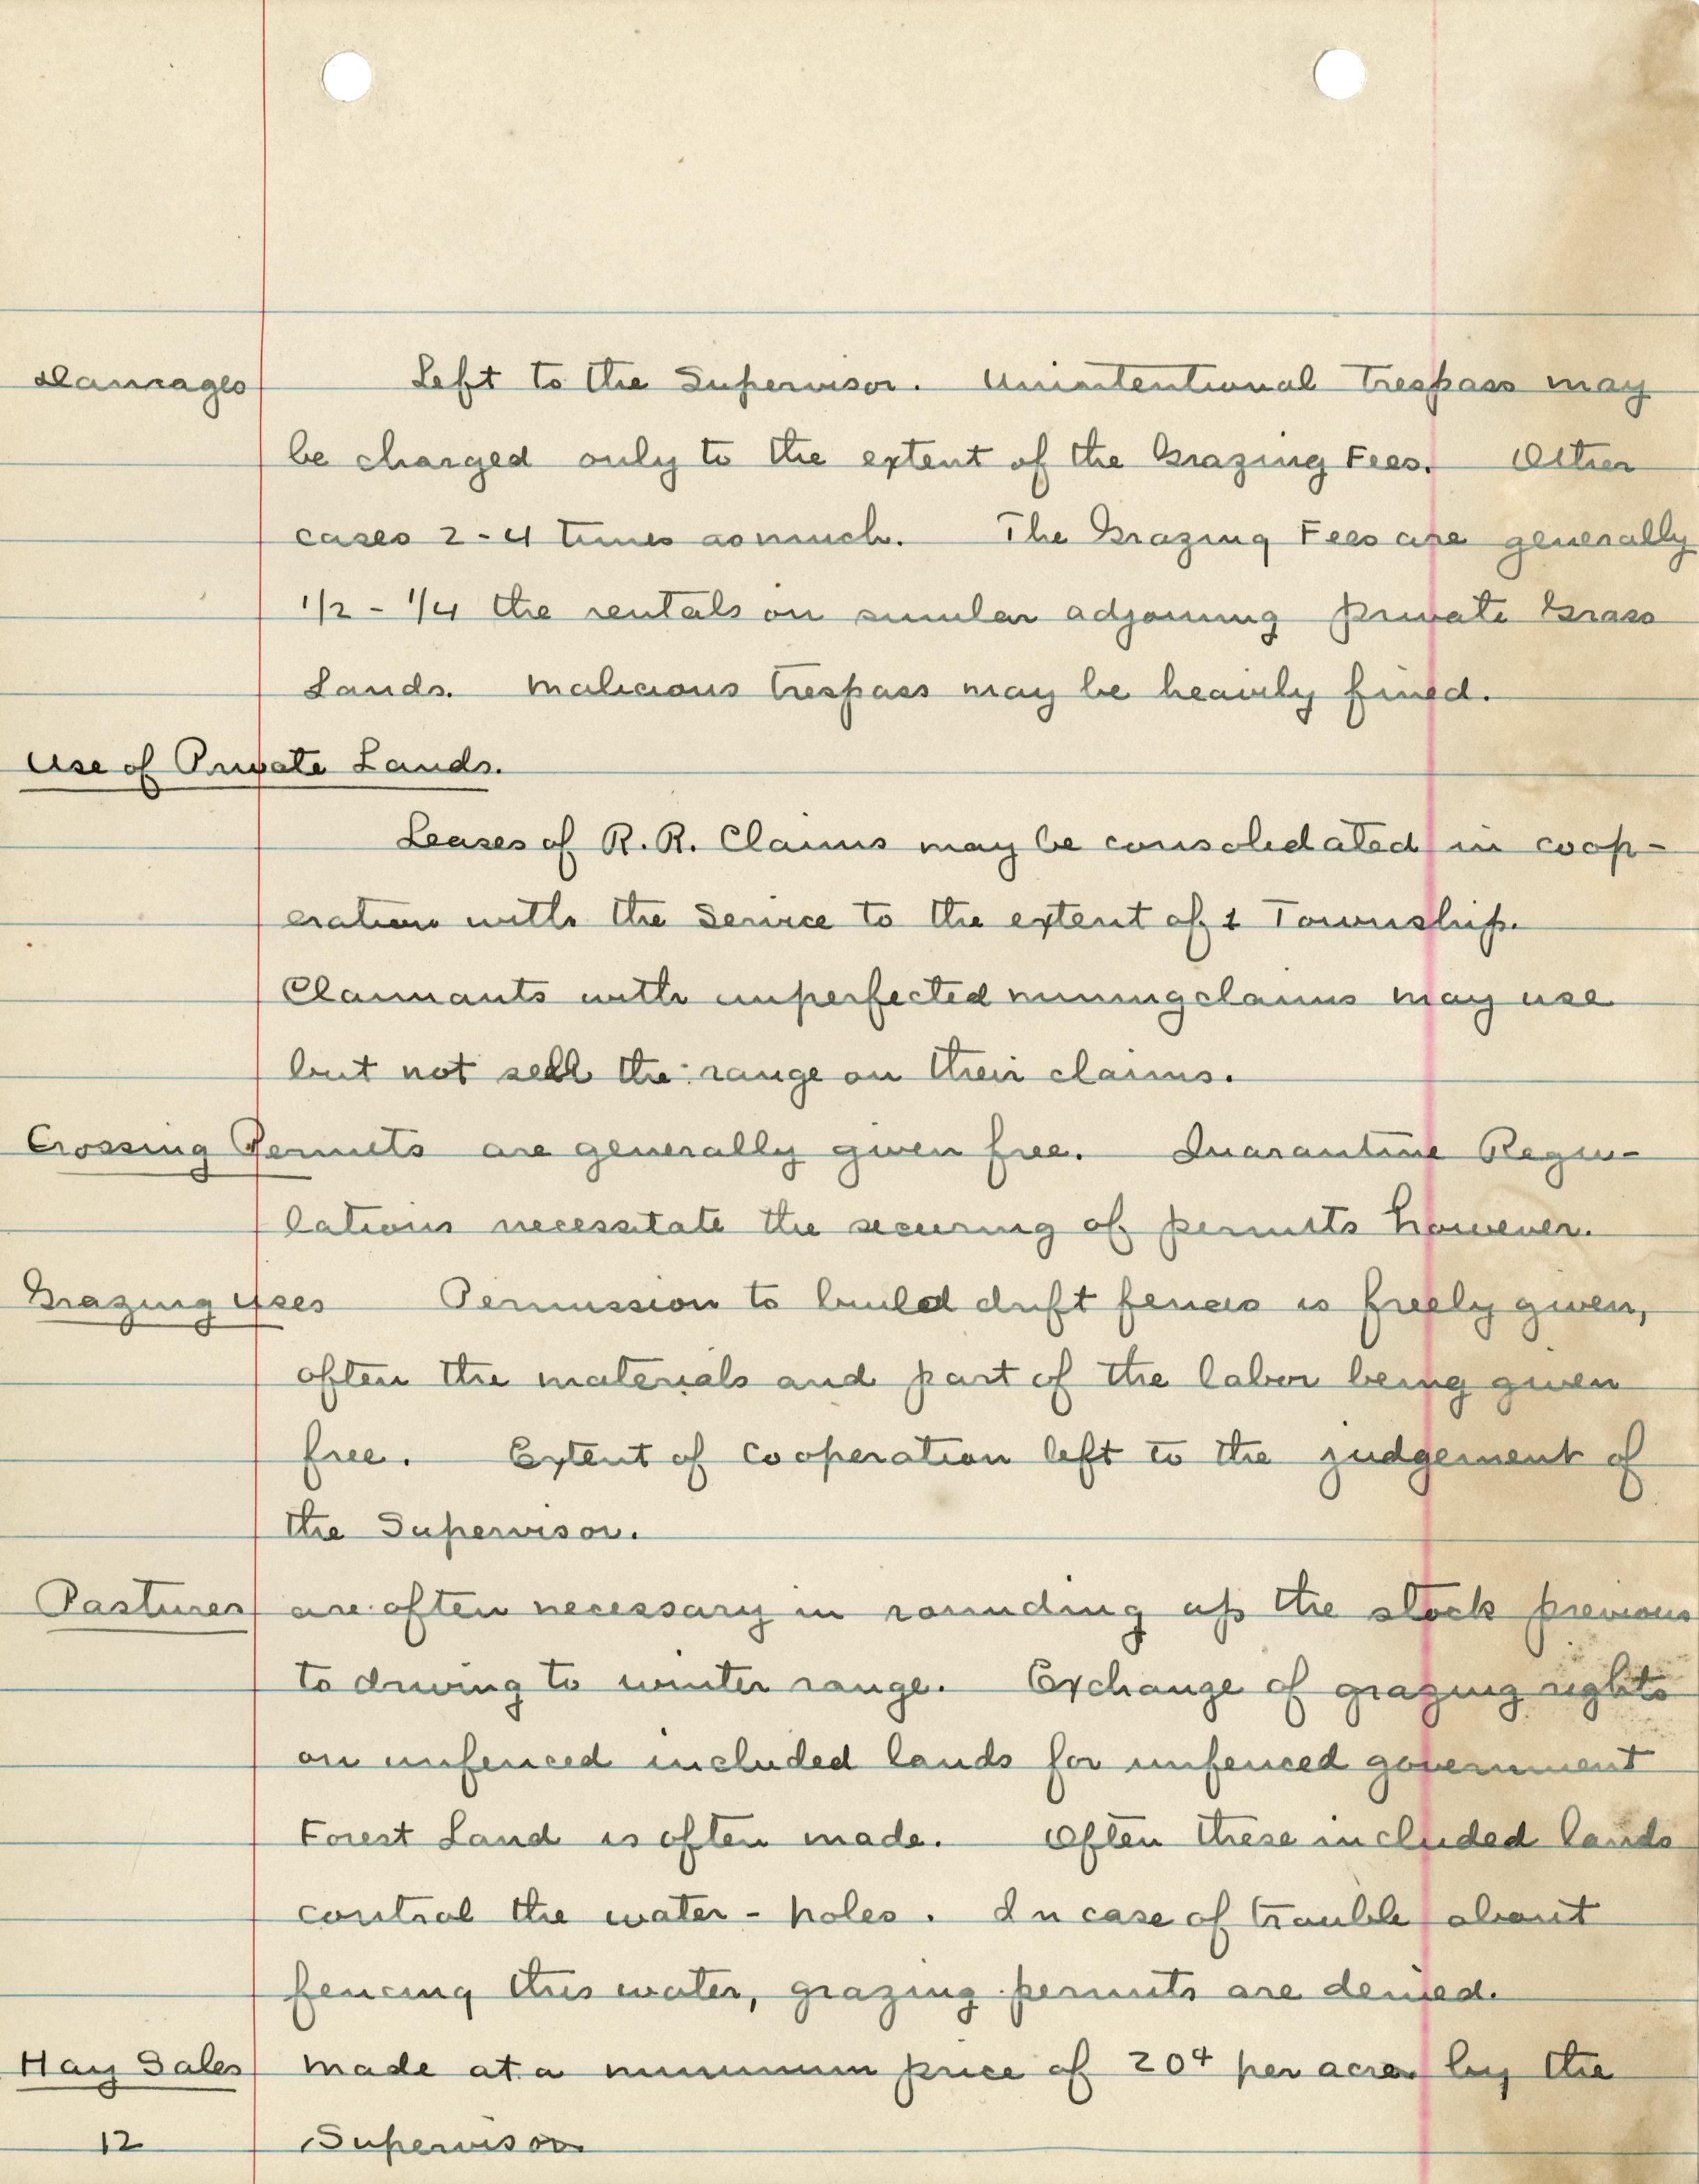 Damages Left to the Supervisor. Unintentional trespass may
be charged only to the extent of the Grazing Fees. Other
cases 2-4 times as much. The Grazing Fees are generally
1/2 - 1/4 the rentals on similar adjoining private Grass
Lands. Malicious trespass may be heavily fined.
Use of Private Lands.
Leases of R.R. Claims may be consolidated in coop-
eration with the Service to the extent of 1 Township.
Claimants with unperfected mining claims may use
but not sell the range on their claims.
Crossing Permits are generally given free. Quarantine Regu-
lations necessitate the securing of permits however.
Grazing Uses Permission to build drift fences is freely given,
often the materials and part of the labor being given
free. Extent of cooperation left to the judgement of
the Supervisor.
Pastures are often necessary in rounding up the stock previous
to driving to winter range. Exchange of grazing rights
on unfenced included lands for unfenced government
Forest Land is often made. Often these included lands
control the water-holes. In case of trouble about
fencing this water, grazing permits are denied.
Hay Sales made at a minimum price of 20¢ per acre by the
12 Supervisor